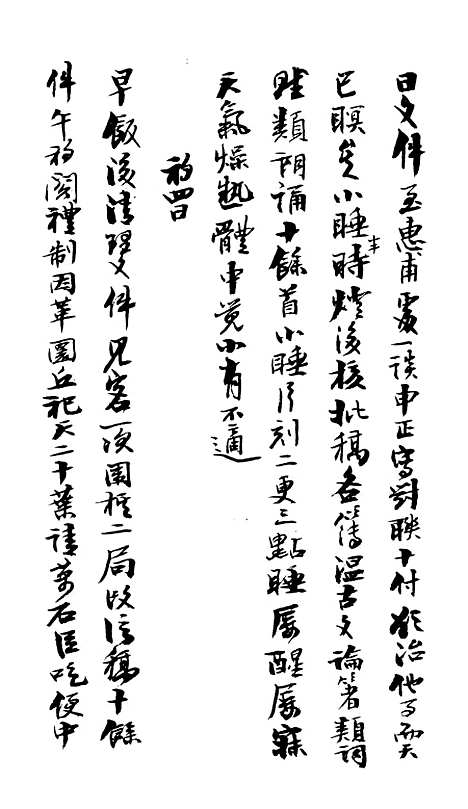 日文件至惠甫處一談申正寫對聯十付欲治他事而天
已瞑矣小睡半時燈後核批稿各簿溫古文論著類詞
賦類朗誦十餘首小睡片刻二更三點睡屢醒屢寐
天氣燥熱體中覺小有不適
初四日
早飯後清理文件見客一次圍棋二局改信稿十餘
件午初閱禮制因革圜丘祀天二十葉請萬石臣吃便中